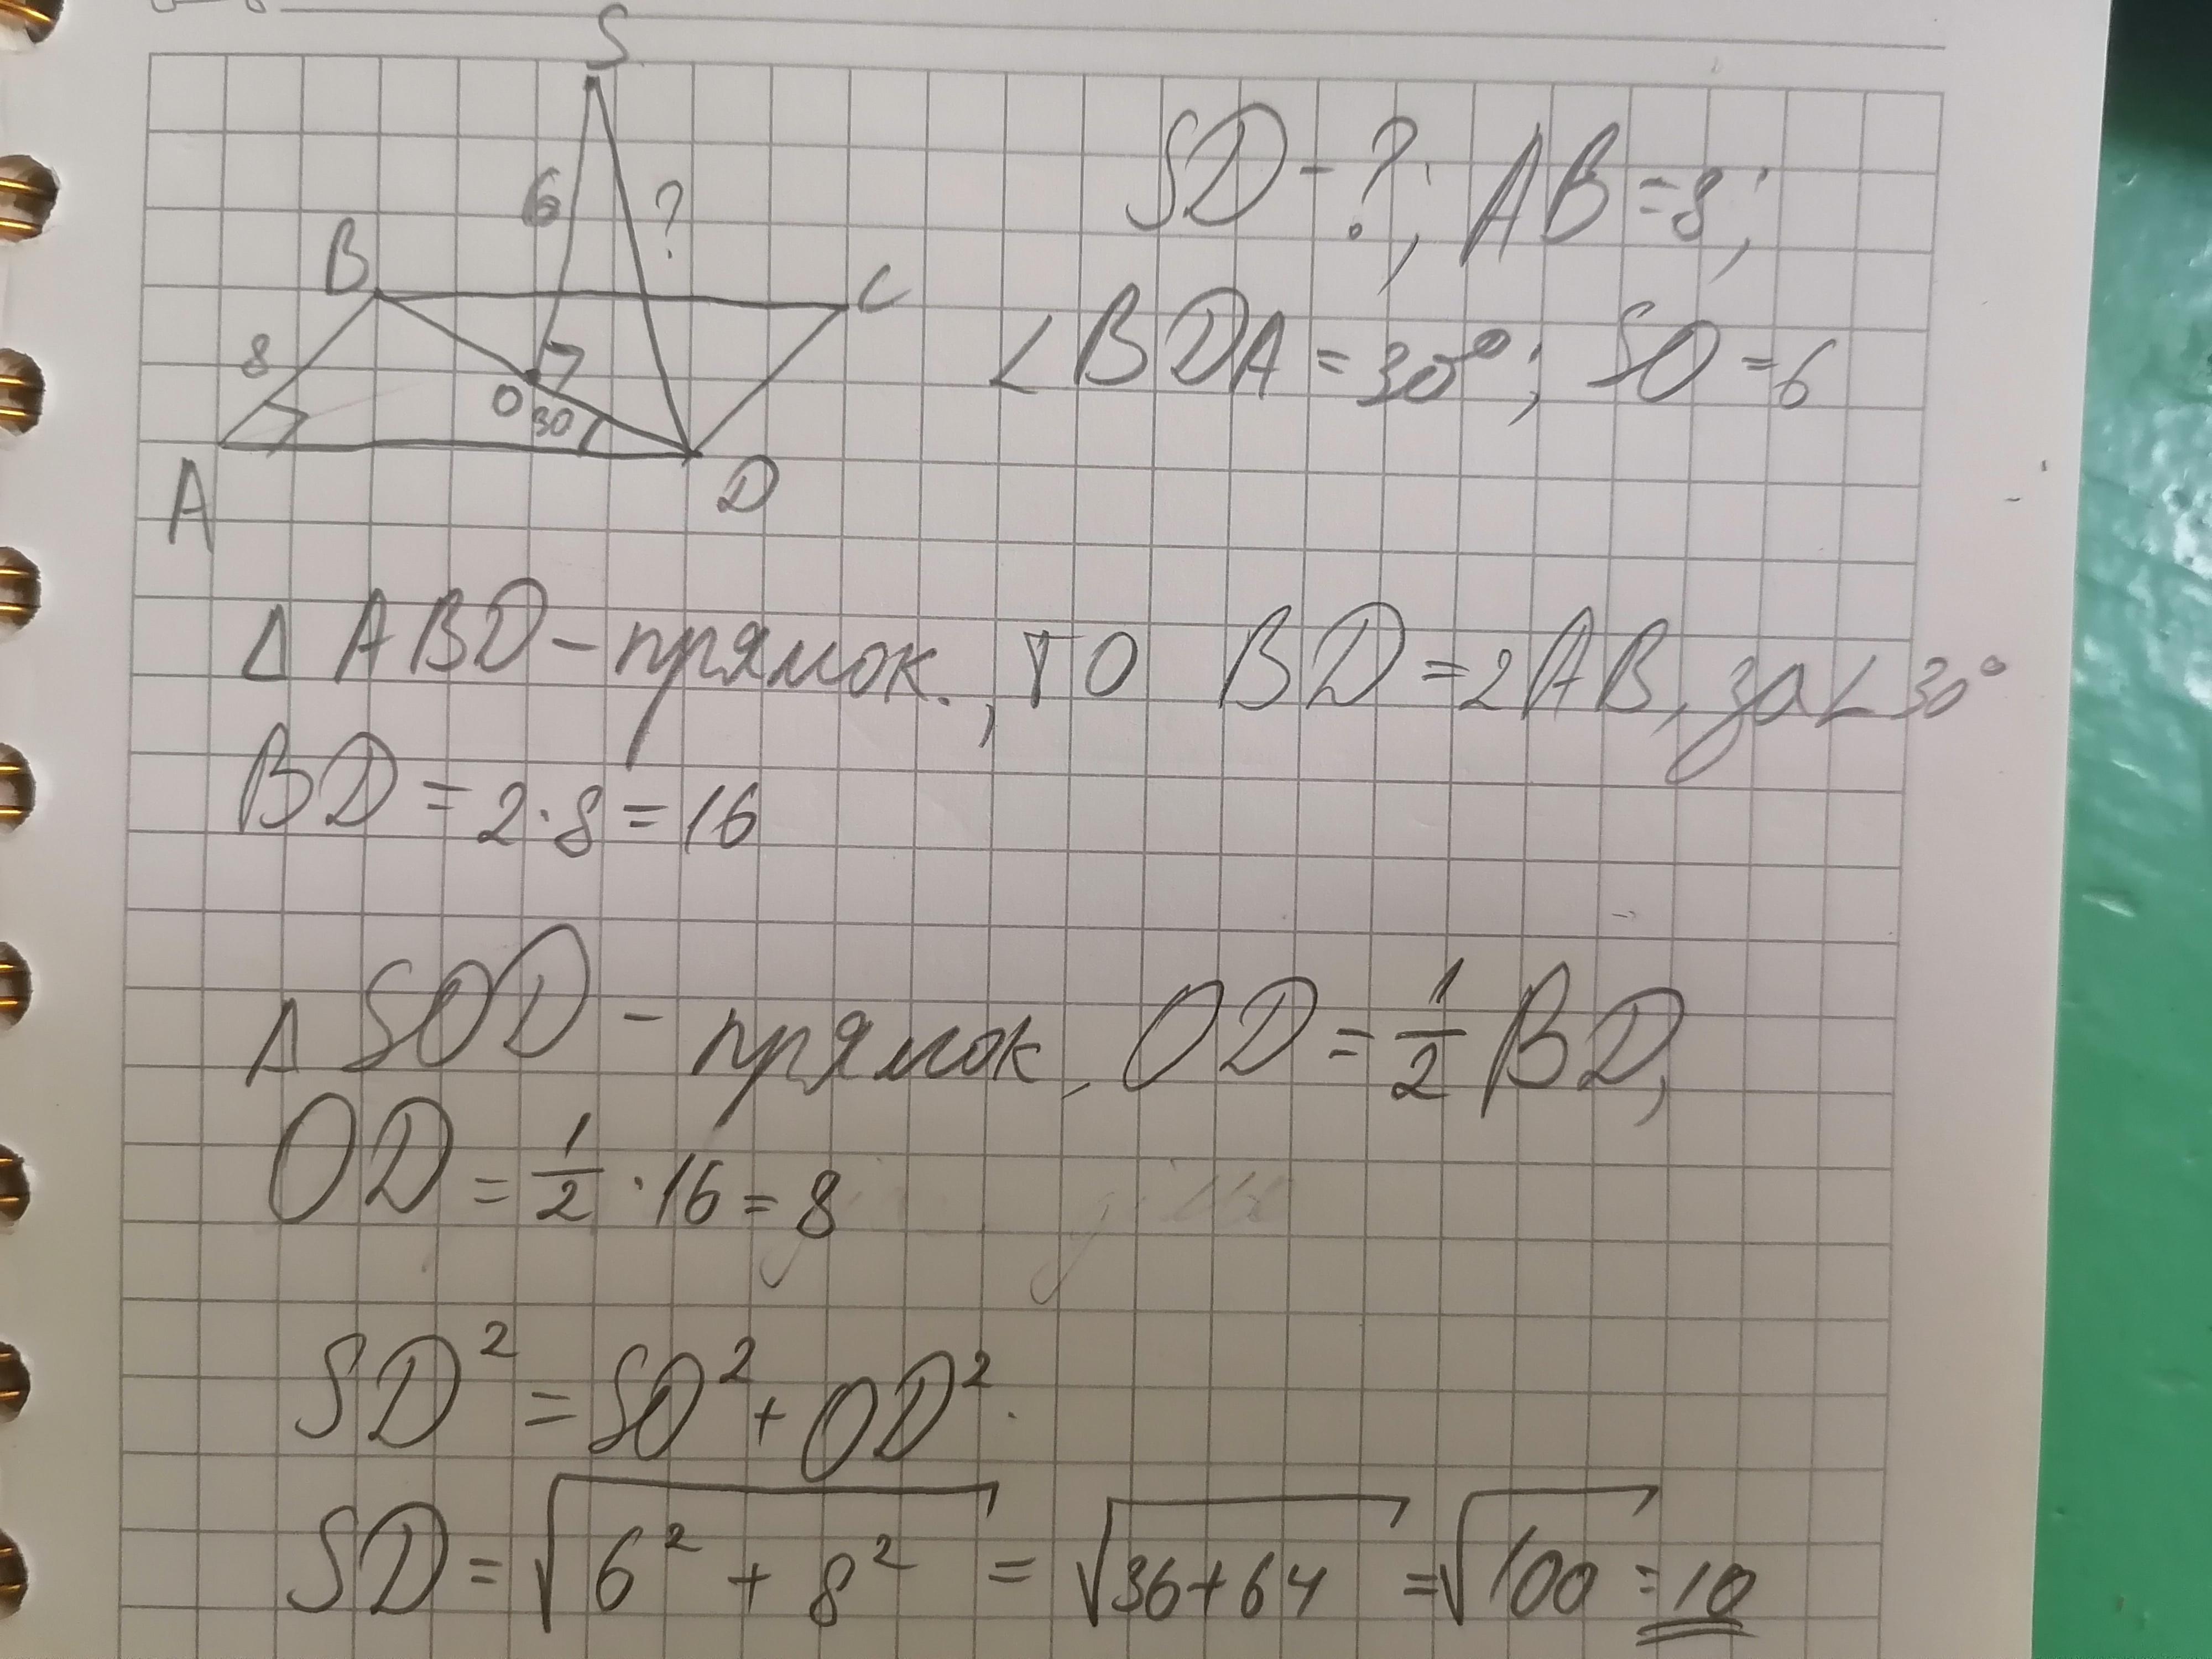 S
6
?
B
C
8
O
30
A
D
SD - ?; AB = 8;
∠BDA = 30°; SO = 6
Δ ABD – прямок., то BD = 2AB, за ∠30°
BD = 2·8 = 16
Δ SOD – прямок, OD = 1/2 BD,
OD = 1/2 · 16 = 8
SD² = SO² + OD².
SD = √(6² + 8²) = √(36+64) = √100 = 10